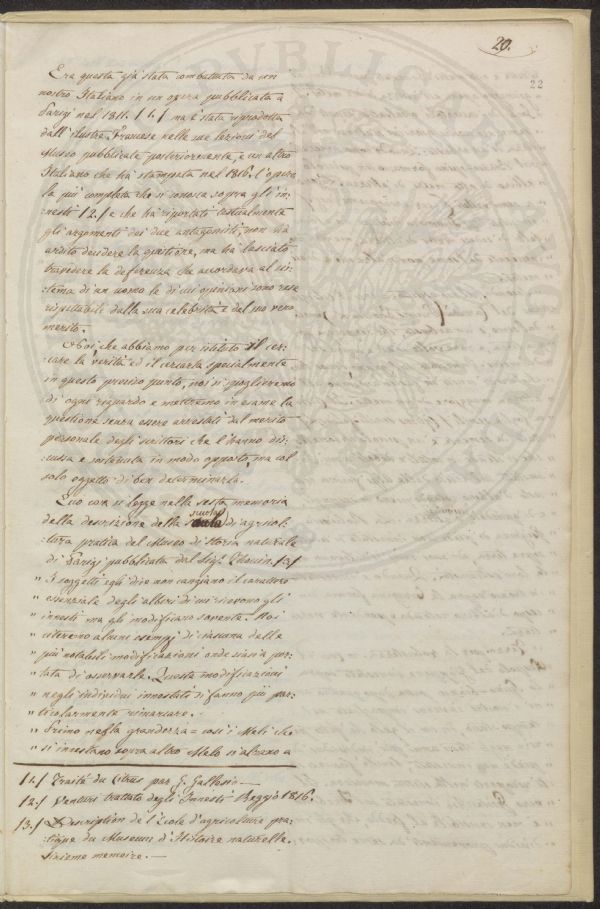 20.
22
Era questa già stata combattuta da un
nostro Italiano in un opera pubblicata a
Parigi nel 1811. /1./ ma è stata riprodotta
dall'illustre Francese nelle sue lezioni del
Museo pubblicate posteriormente, e un altro
Italiano che ha stampata nel 1816. l'opera
la più completa che si conosca sopra gli in-
nesti /2./ e che ha riportati testualmente
gli argomenti dei due antagonisti, non ha
ardito decidere la quistione, ma ha lasciato
travedere la deferenza che accordava al sis-
:tema di un uomo le di cui opinioni sono rese
rispettabili dalla sua celebrità e dal suo vero
merito.
Noi che abbiamo per istituto il cer-
:care la verità ed il cercarla specialmente
in questo preciso punto, noi si spoglieremo
di ogni riguardo e metteremo in esame la
questione senza essere arrestati dal merito
personale degli scrittori che l'hanno dis-
cussa e sostenuta in modo opposto, ma col
solo oggetto di ben determinarla.
Ecco cosa si legge nella sesta memoria
della descrizione della scuola di agricol-
:tura pratica del Museo di storia naturale
di Parigi pubblicata dal Sig.r Thouin /3./
" I soggetti egli dice non cangiano il carattere
" essenziale degli alberi di cui ricevono gli
" innesti ma gli modificano sovente. Noi
" citeremo alcuni esempj di ciascuna delle
" più notabili modificazioni onde siasi a por-
" tata di osservarle. Queste modificazioni
" negli individui innestati si fanno più par-
" ticolarmente rimarcare.
" Primo nella grandezza = così i Meli che
" si innestano sopra altro Melo si alzano a
/1./ Traité du Citrus par G. Gallesio.—
/2./ Venturi trattato degli Innesti Reggio 1816.
/3./ Description de l'Ecole d'agriculture pra-
:tique du Museum d'Histoire naturelle.
Sixieme memoire.—